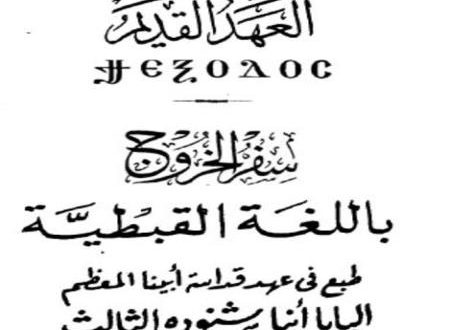 العهد القديم
ϮⲈⲜⲞⲆⲞⲤ
سِفْرُ الخُرُوج
باللغَة القبْطيَّة
طبع فى عهد قداسة أبينا المعظم
البابا أنبا شنوده الثالث